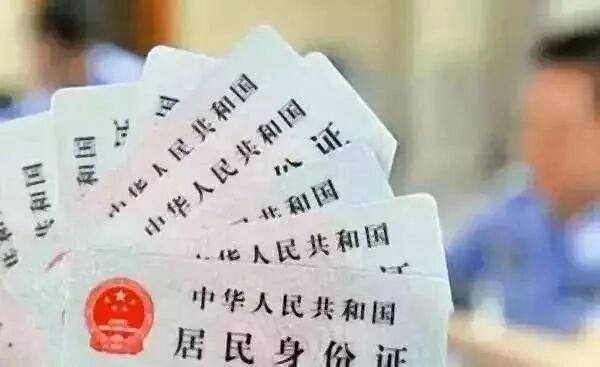 共和国
共和国
中华人民共和国
中华人民共和国
份证
共和国
中华人民共和国
中华人民共和国
居民身份证